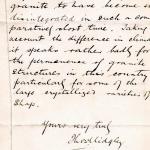 granite to have become so
disintegrated in such a com-
paratively short time, Taking
account the difference in climate
it speaks rather badly for
the permanence of granite
structures in this country
particularly for some of the
large crystallized varieties of
Shap.
Yours very truly